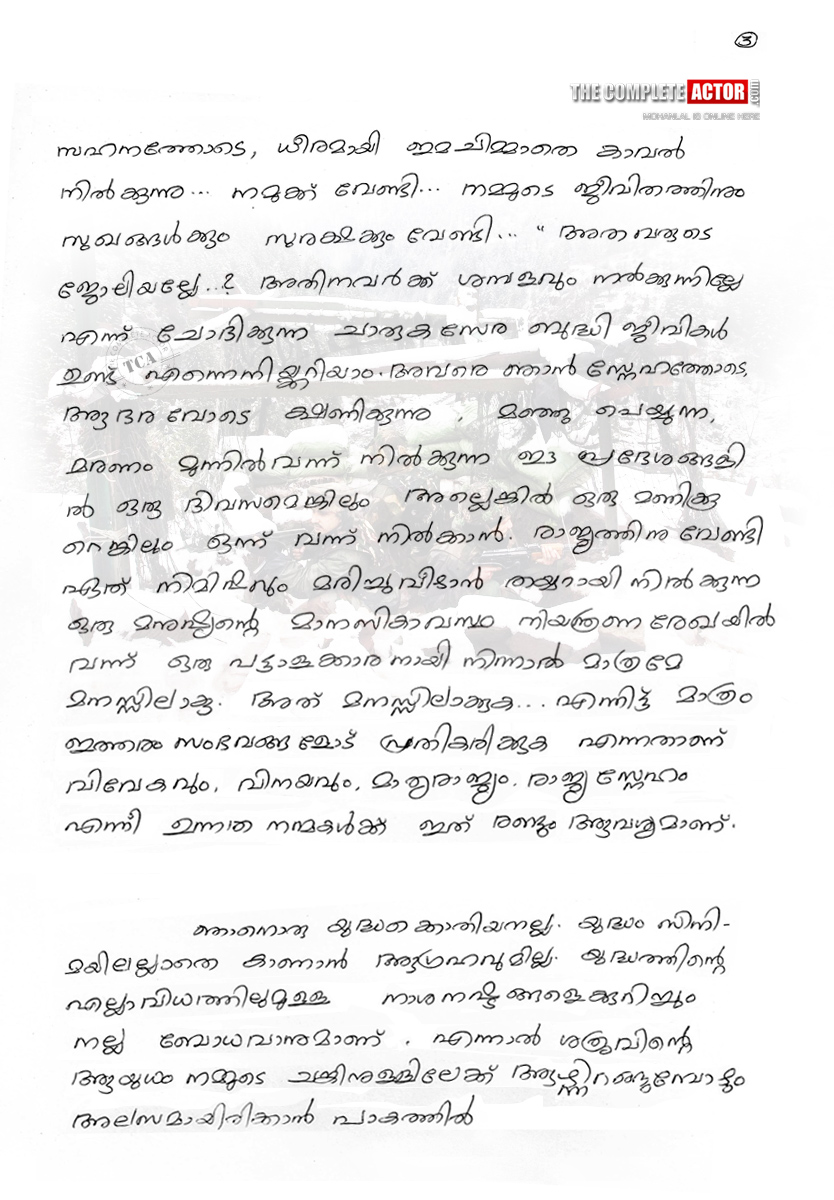 ൩
THE COMPLETE ACTOR .COM
MOHANLAL IS ONLINE HERE
സഹനത്തോടെ, ധീരമായി ഇമചിമ്മാതെ കാവൽ
നിൽക്കുന്നു... നമുക്ക് വേണ്ടി... നമ്മുടെ ജീവിതത്തിനും
സുഖങ്ങൾക്കും സുരക്ഷക്കും വേണ്ടി... " അതവരുടെ
ജോലിയല്ലേ..? അതിനവർക്ക് ശമ്പളവും നൽകുന്നില്ലേ
എന്ന് ചോദിക്കുന്ന ചാരുകസേര ബുദ്ധിജീവികൾ
ഉണ്ട് എന്നെനിയ്ക്കറിയാം. അവരെ ഞാൻ സ്നേഹത്തോടെ,
TCA
ആദരവോടെ ക്ഷണിക്കുന്നു , മഞ്ഞു പെയ്യുന്ന,
മരണം മുന്നിൽ വന്ന് നിൽക്കുന്ന ഈ പ്രദേശങ്ങളി
ൽ ഒരു ദിവസമെങ്കിലും അല്ലെങ്കിൽ ഒരു മണിക്കൂ
റെങ്കിലും ഒന്ന് വന്ന് നിൽക്കാൻ. രാജ്യത്തിനു വേണ്ടി
ഏത് നിമിഷവും മരിച്ചുവീഴാൻ തയ്യാറായി നിൽക്കുന്ന
ഒരു മനുഷ്യന്റെ മാനസികാവസ്ഥ നിയന്ത്രണ രേഖയിൽ
വന്ന് ഒരു പട്ടാളക്കാരനായി നിന്നാൽ മാത്രമേ
മനസ്സിലാകൂ. അത് മനസ്സിലാക്കുക... എന്നിട്ട് മാത്രം
ഇത്തരം സംഭവങ്ങളോട് പ്രതികരിക്കുക എന്നതാണ്
വിവേകവും, വിനയവും, മാതൃരാജ്യം, രാജ്യ സ്നേഹം
എന്നീ ഉന്നത നന്മകൾക്ക് ഇത് രണ്ടും ആവശ്യമാണ്.
ഞാനൊരു യുദ്ധക്കൊതിയനല്ല. യുദ്ധം സിനി-
മയിലല്ലാതെ കാണാൻ ആഗ്രഹവുമില്ല. യുദ്ധത്തിന്റെ
എല്ലാവിധത്തിലുമുള്ള നാശനഷ്ടങ്ങളെക്കുറിച്ചും
നല്ല ബോധവാനുമാണ് . എന്നാൽ ശത്രുവിന്റെ
ആയുധം നമ്മുടെ ചങ്കിനുള്ളിലേക്ക് ആഴ്ന്നിറങ്ങുമ്പോഴും
അലസമായിരിക്കാൻ പാകത്തിൽ